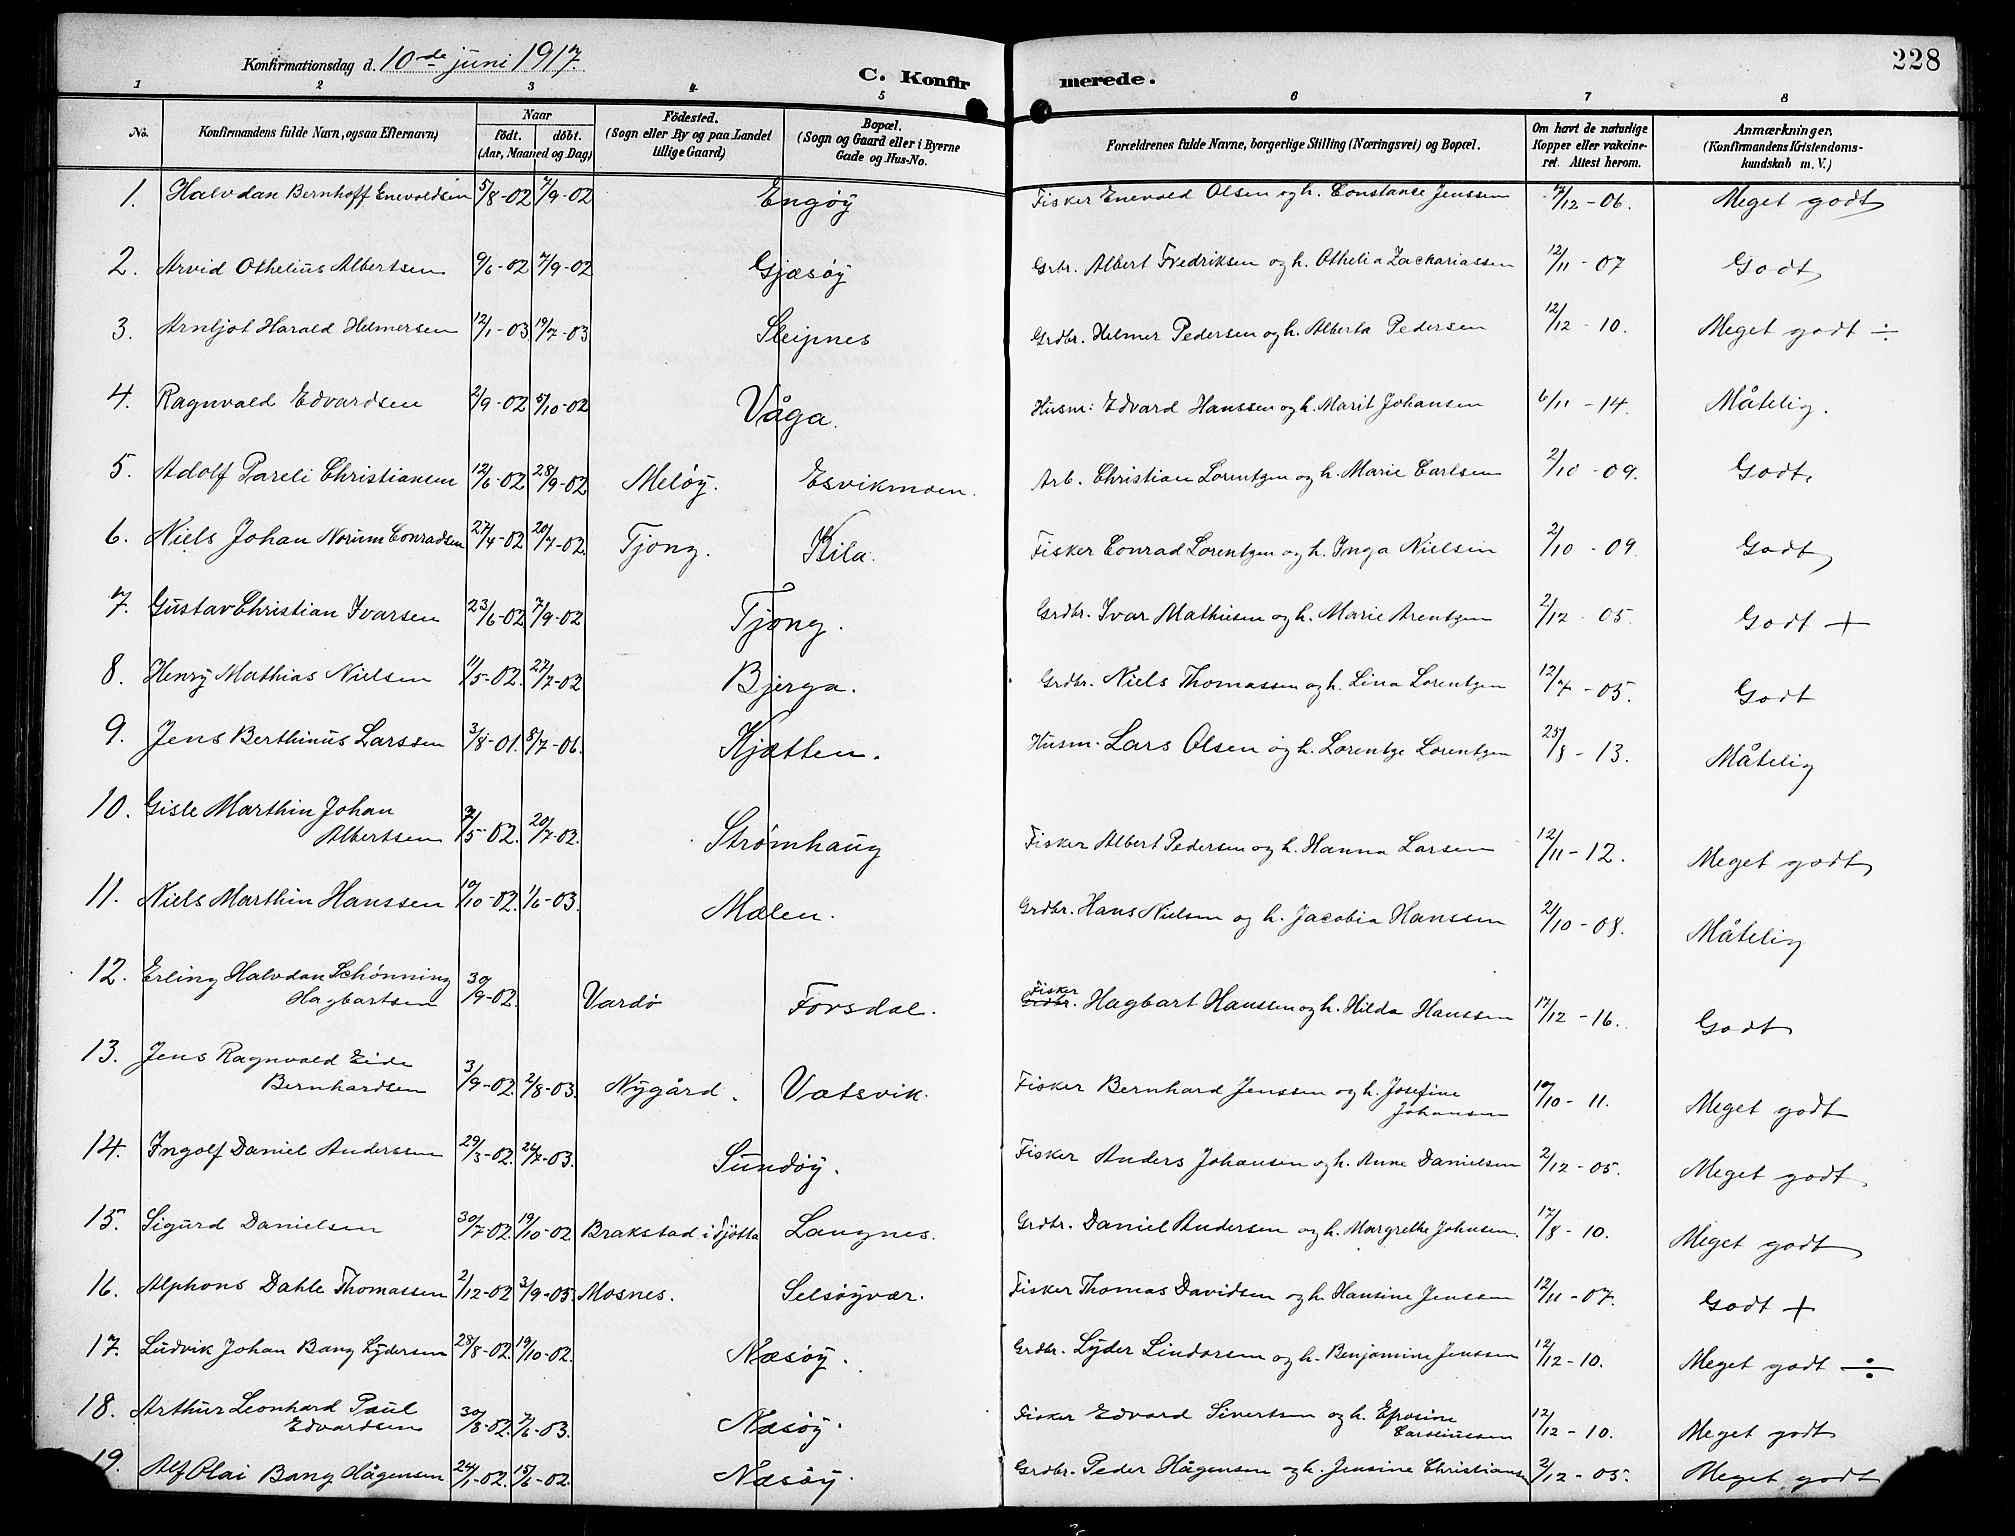 228
Konfirmationsdag d. 10de juni 1917.
C. Konfirmerede.
1 2 3 4 5 6 7 8
No. Konfirmandens fulde Navn, ogsaa Efternavn) Naar født. døbt. (Aar, Maaned og Dag) Födested. (Sogn eller By og paa Landet tillige Gaard) Bopæl. (Sogn og Gaard eller i Byerne Gade og Hus-No. Forældrenes fulde Navne, borgerlige Stilling (Næringsvei) og Bopæl. Om havt de naturlige Kopper eller vakcineret. Attest herom. Anmærkninger, (Konfirmandens Kristendomskundskab m. V.)
1. Halvdan Bernhoff Enevoldsen 5/8-02 7/9-02 Engöy Fisker Enevold Olsen og h. Constance Jenssen /12-06. Meget godt
2. Arvid Othelius Albertsen 9/6-02 7/9-02 Gjæsöy Grbr. Albert Fredriksen og h. Othelia Zachariassen 12/11-07 Godt
3. Arnljot Harald Helmersen 12/1-03 19/7-03 Sleipnes Grdbr. Helmer Pedersen og h. Alberta Pedersen 12/12-10. Meget godt ÷
4. Ragnvald Edvardsen 2/9-02 5/10-02 Våga. Husm: Edvard Hanssen og h. Marit Johansen 6/11-14. Måtelig.
5. Adolf Pareli Christiansen 12/6-02 28/9-02 Melöy. Esvikmoen. Arb. Christian Lorentzen og h. Marie Carlsen 2/10-09. Godt.
6. Niels Johan Norum Conradsen 27/4-02 20/7-02. Tjong. Kila. Fisker Conrad Lorentzen og h. Inga Nielsen 2/10-09. Godt
7. Gustav Christian Ivarsen 23/6-02 7/9-02. Tjong. Grdbr. Ivar Mathisen og h. Marie Arentzen 2/12-05. Godt +
8. Henry Mathias Nielsen 11/5-02. 27/7-02 Bjerga. Grdbr. Niels Thomassen og h. Lina Lorentzen 12/7-05. Godt
9. Jens Berthinus Larssen 3/8-01. 8/7-06. Kjøtten. Husm. Lars Olsen og h. Lorentze Lorentzen 25/8-13. Måtelig
10. Gisle Marthin Johan
Albertsen 7/5-02. 20/7-02. Strømhaug Fisker Albert Pedersen og h. Hanna Larsen 12/11-12. Meget godt
11. Niels Marthin Hanssen 10/10-02. 1/6-03. Målen. Grdbr. Hans Nielsen og h. Jacobia Hanssen 2/10-08. Måtelig
12. Erling Halvdan Schønning
Hagbartsen 30/9-02. Vardø Forsdal. Fisker Grdbr. Hagbart Hanssen og h. Hilda Hanssen 17/12-16. Godt
13. Jens Ragnvald Eide
Bernhardsen 3/9-02. 2/8-03. Nygård. Vatsvik. Fisker Bernhard Jenssen og h. Josefine
Johansen 10/10-11. Meget godt
14. Ingolf Daniel Anderssen 29/3-02. 26/7-03. Sundöy. Fisker Anders Johansen og h. Anne Danielsen 2/12-05. Meget godt
15. Sigurd Danielsen 30/7-02. 19/10-02. Brakstad i Tjøtta Langnes. Grdbr. Daniel Andersen og h. Margrethe Johnsen. 17/8-10. Meget godt
16. Alphons Dahle Thomassen 2/12-02 3/9-05. Mosnes. Selsöyvær. Fisker Thomas Davidsen og h. Hansine Jenssen 12/11-07. Godt +
17. Ludvik Johan Bang Lydersen 28/8-02. 19/10-02. Næsöy. Grdbr. Lyder Lindorsen og h. Benjamine Jenssen 12/12-10. Meget godt ÷
18. Arthur Leonhard Paul
Edvardsen 30/8-02. 7/6-03. Næsöy. Fisker Edvard Sivertsen og h. Efrosine
Carstinssen 12/12-10. Meget godt
19. Alf Olai Bang Hågensen 24/1-02. 15/6-02. Næsöy. Grdbr. Peder Hågensen og h. Jensine Christiansen 2/12-05. Meget godt